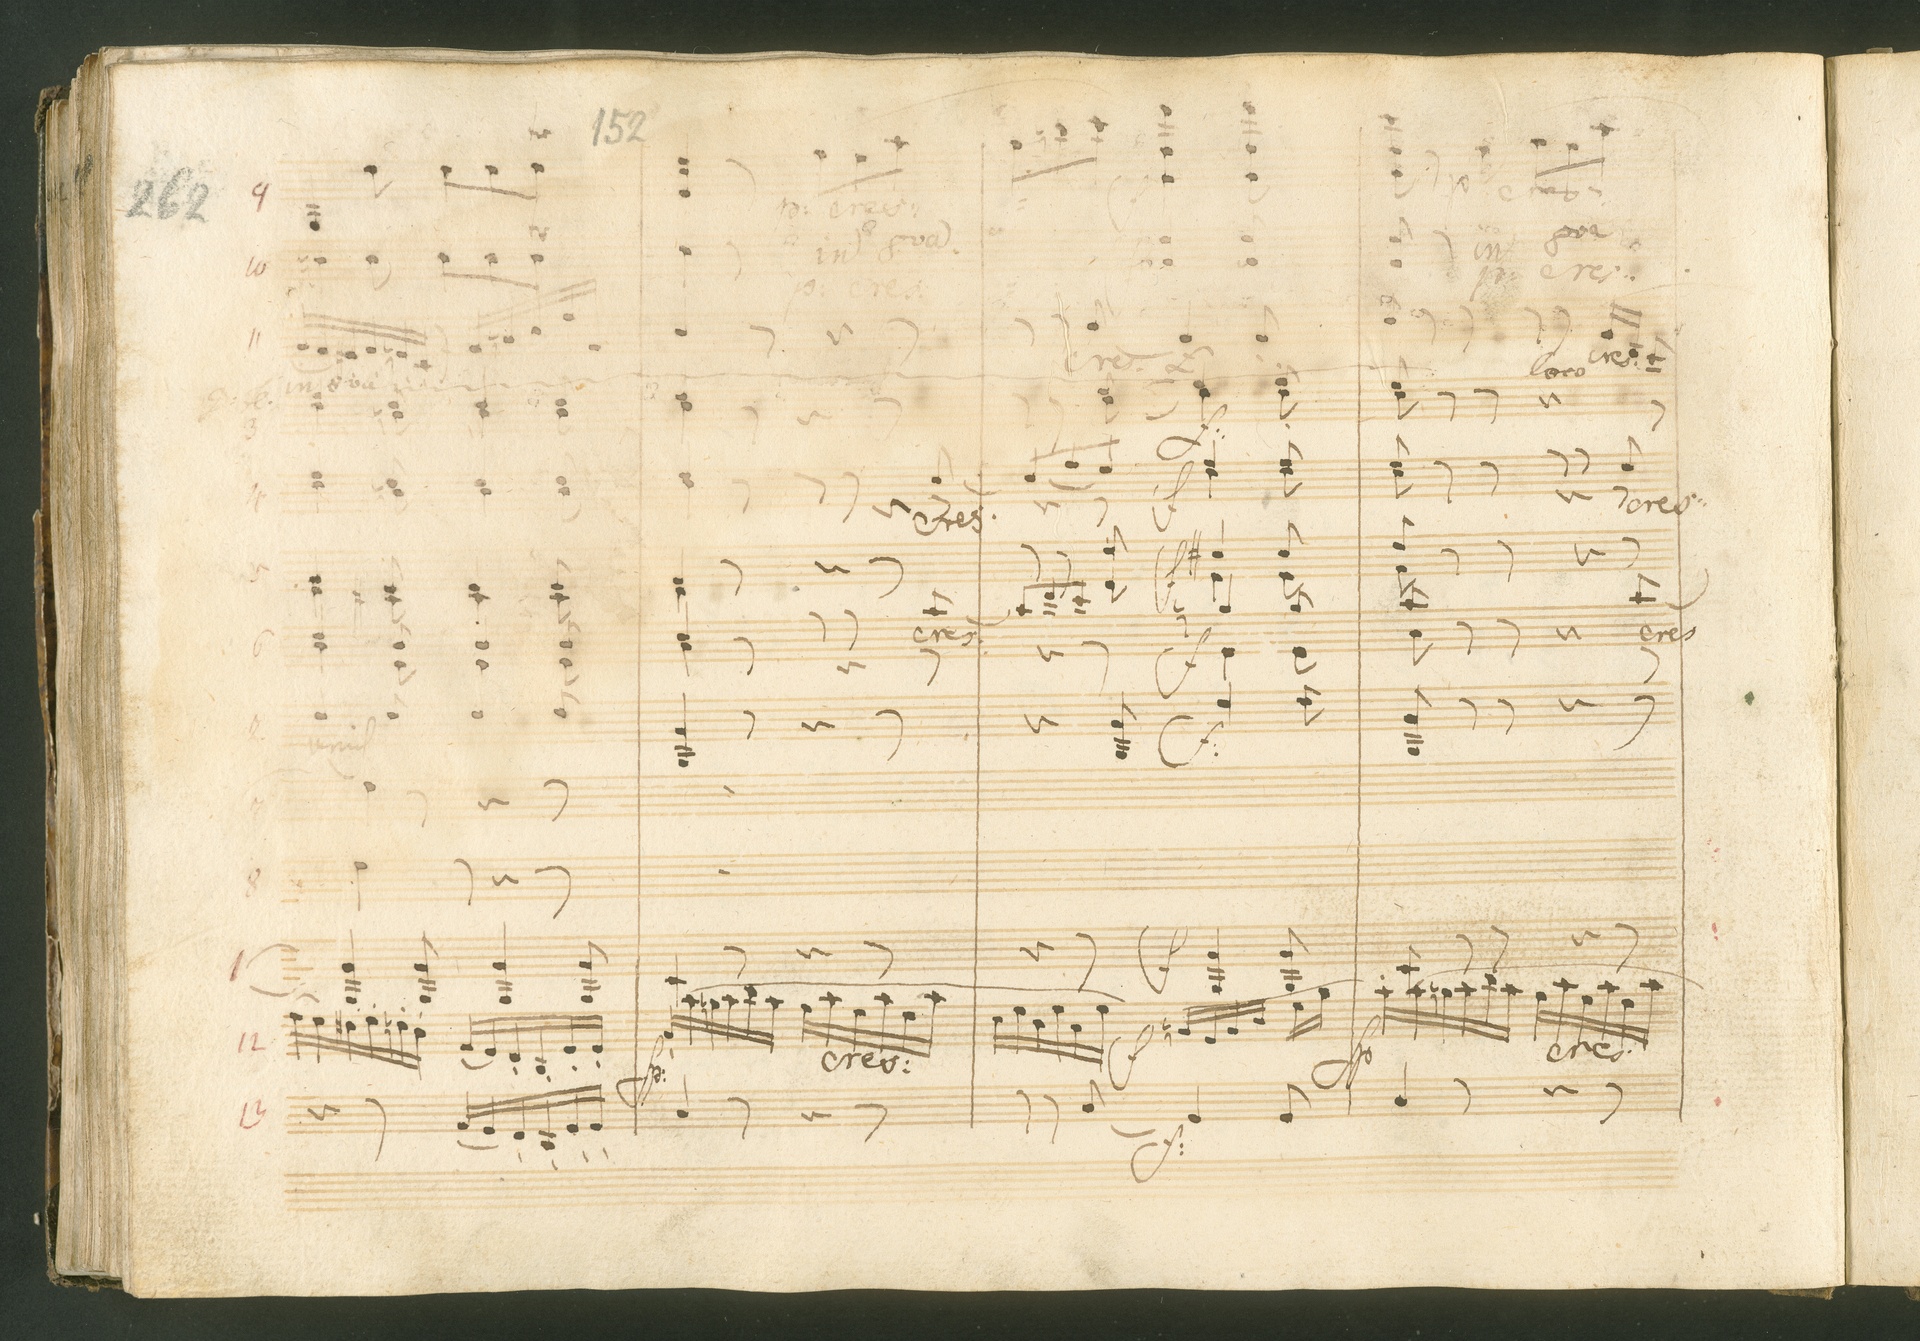 152
262
9
p: cres:
in 8va
10
in 8va
p: cres:
p: cres:
11
in 8va
cres.
loco cres:
3
f:
4
cres:
f
cres:
5
f
6
cres:
f
cres
2
unis
f:
7
8
1
f
12
fp:
cres:
f
fp
cres:
13
f: